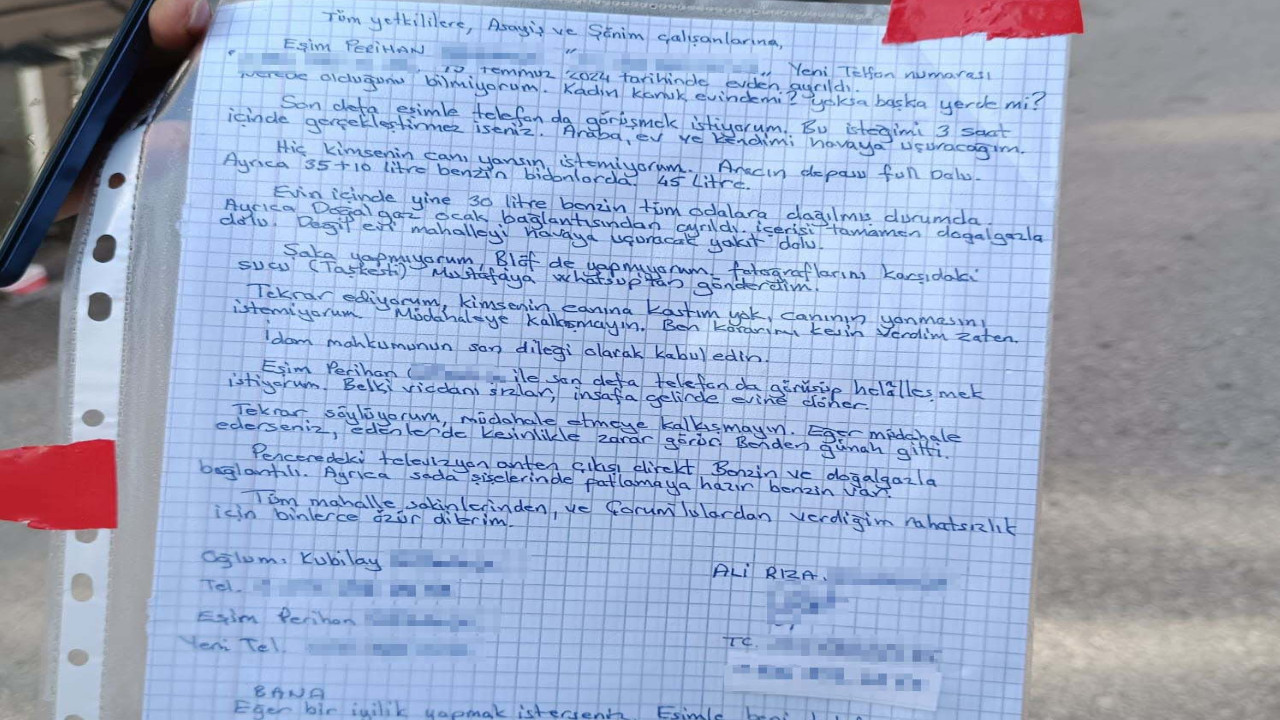 Tüm yetkililere, Asayiş ve Şönim çalışanlarına,
Eşim PERİHAN " "
" " Yeni Telfon numarası
10 Temmuz 2024 tarihinde evden ayrıldı.
Nerede olduğunu bilmiyorum. Kadın konuk evindemi? yoksa başka yerde mi?
Son defa eşimle telefon da görüşmek istiyorum. Bu isteğimi 3 saat
içinde gerçekleştirmez iseniz. Araba, ev ve kendimi havaya uçuracağım.
Hiç kimsenin canı yansın, istemiyorum. Aracın deposu full dolu.
Ayrıca 35+10 litre benzin bidonlarda. 45 Litre.
Evin içinde yine 30 litre benzin tüm odalara dağılmış durumda.
Ayrıca Doğal gaz ocak bağlantısından ayrıldı. içerisi tamamen doğalgazla
dolu. Değil evi mahalleyi havaya uçuracak yakıt dolu.
Şaka yapmıyorum, Blöf de yapmıyorum. fotoğraflarını karşıdaki
sucu (Taşkesti) Mustafaya whatsuptan gönderdim.
Tekrar ediyorum, kimsenin canına kastım yok, canının yanmasını
istemiyorum Müdahaleye kalkışmayın. Ben kararımı kesin verdim zaten.
İdam mahkumunun son dileği olarak kabul edin.
Eşim Perihan ( ile son defa telefon da görüşüp helâlleşmek
istiyorum. Belki vicdanı sızlar, insafa gelirde evine döner.
Tekrar söylüyorum, müdahale etmeye kalkışmayın. Eğer müdahale
ederseniz, edenlerde kesinlikle zarar görür. Benden günah gitti.
Penceredeki televizyon anten çıkışı direkt Benzin ve doğalgazla
bağlantılı. Ayrıca soda şişelerinde patlamaya hazır benzin var.
Tüm mahalle sakinlerinden, ve Çorumlulardan verdiğim rahatsızlık
için binlerce özür dilerim.
Oğlum: Kubilay
ALİ RIZA.
Tel.
Eşim Perihan
TC.
Yeni Tel.
BANA
Eğer bir iyilik yapmak isterseniz. Eşimle beni